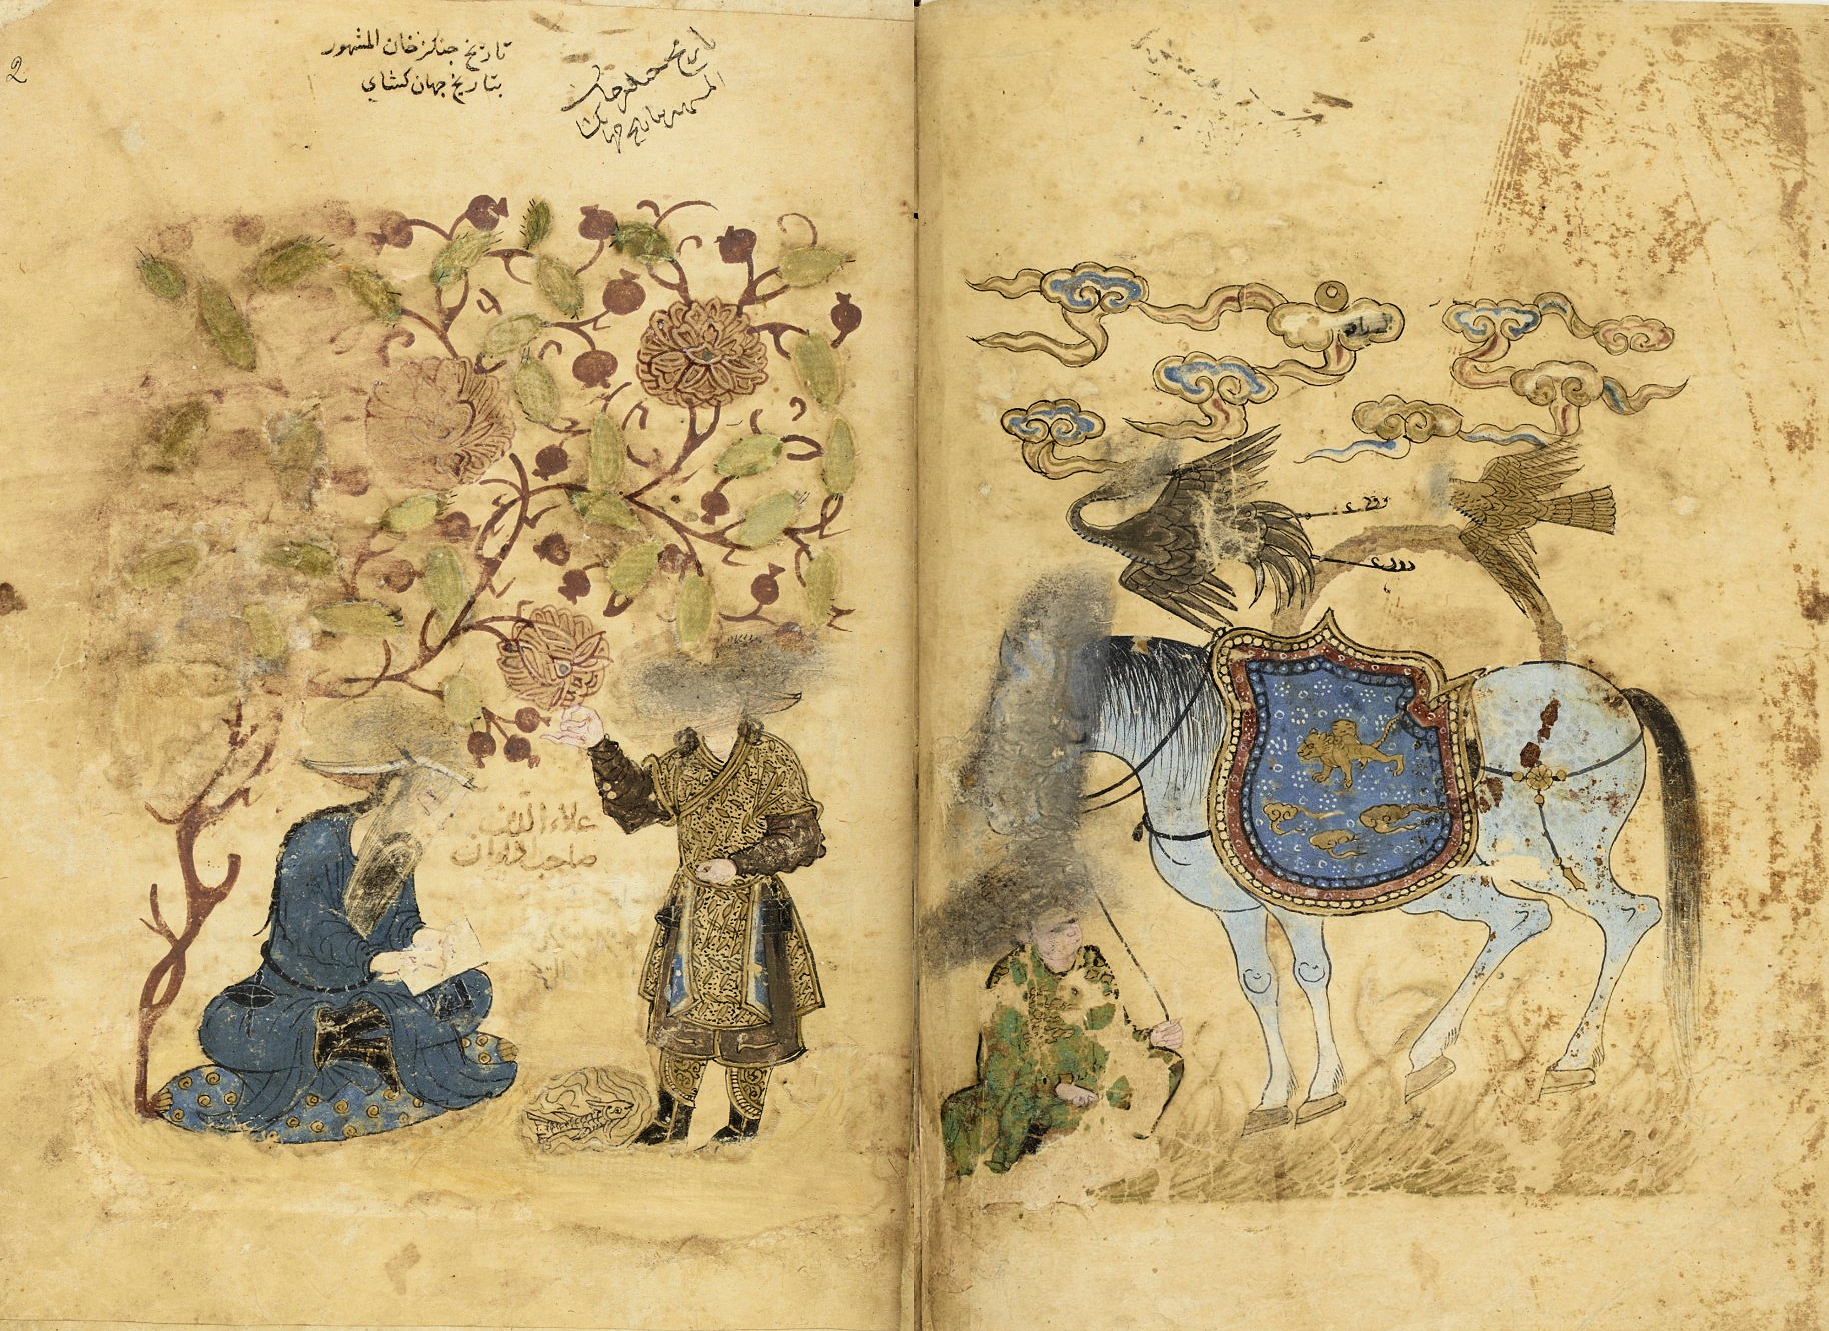 2
تاريخ جنكزخان المشهور
بتاريخ جهان كشاي
تاريخ جنكزخان
المشهور بتاريخ جهانكشا
علاء الدين
صاحب ديوان